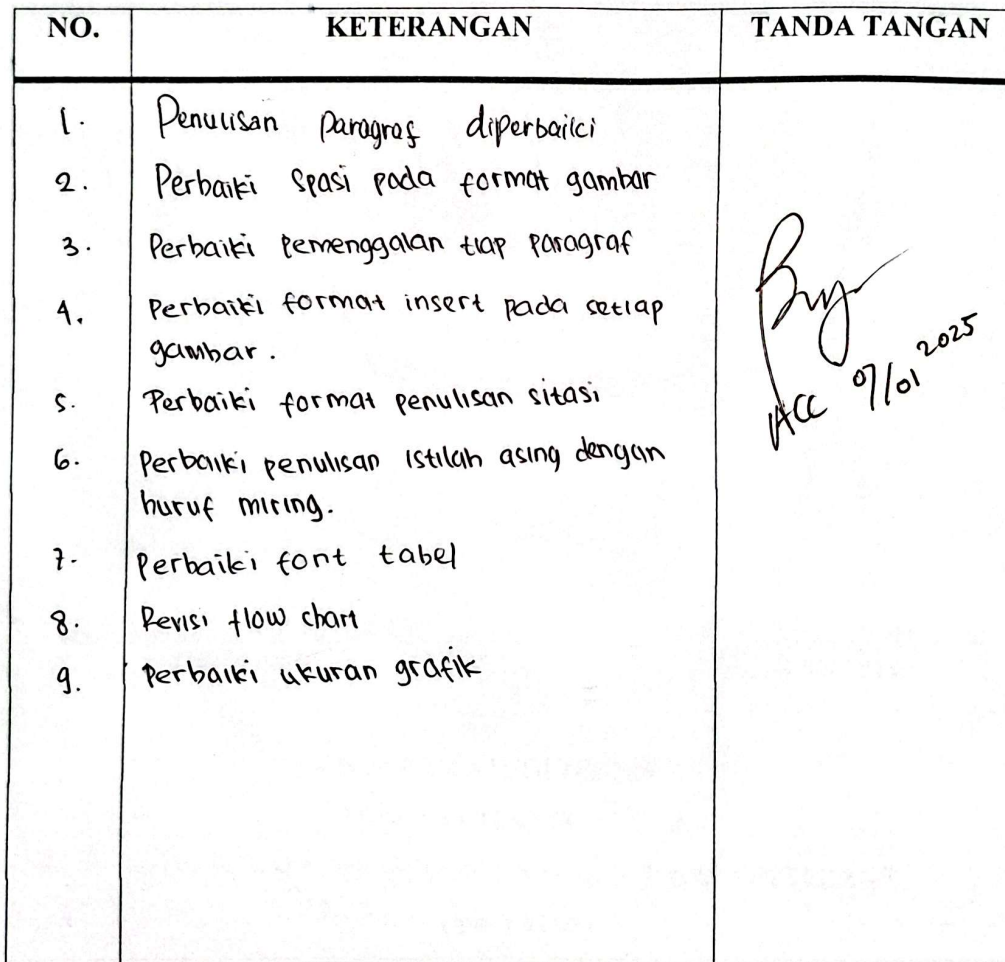 NO. KETERANGAN TANDA TANGAN
1. Penulisan paragraf diperbaiki
2. Perbaiki spasi pada format gambar
3. Perbaiki pemenggalan tiap paragraf
4. Perbaiki format insert pada setiap
gambar.
5. Perbaiki format penulisan sitasi
6. Perbaiki penulisan istilah asing dengan
huruf miring.
7. Perbaiki font tabel
8. Revisi flow chart
9. Perbaiki ukuran grafik
ACC 07/01 2025